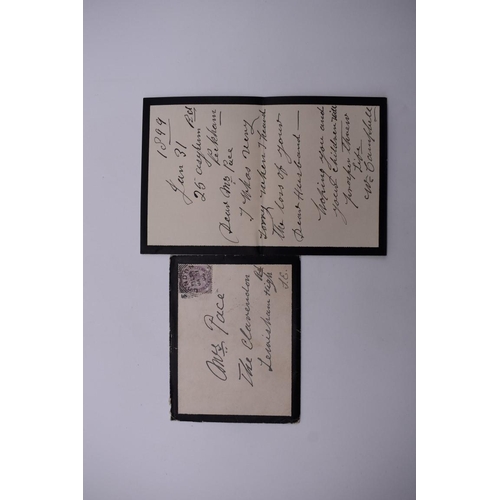 1899
Jan 31
25 asylum Rd
Peckham
Dear Mrs Pace
I Was very
sorry when I heard
the loss of your
Dear Husband —
hoping you and
your Children Will
prosper threw
Life
Wm Campbell
Mrs Pace
The Clavendon
Lewisham High Rd
S.E.